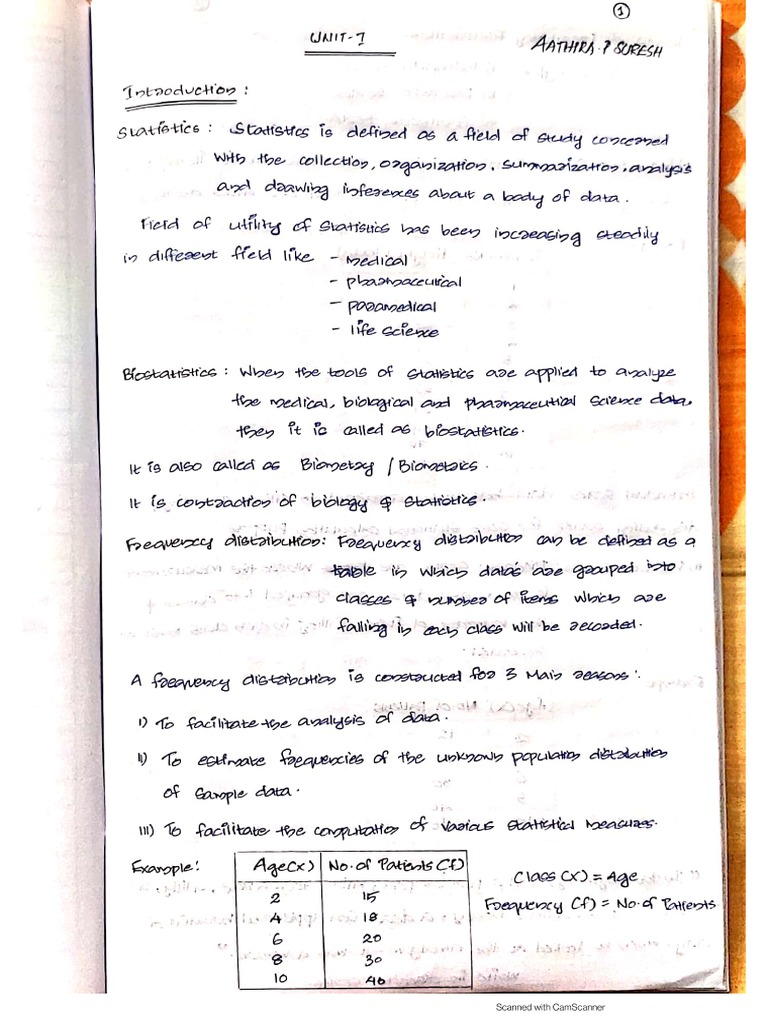 1
UNIT-I
AATHIRA.P SURESH
Introduction :
Statistics : Statistics is defined as a field of study concerned
with the collection, organization, summarization, analysis
and drawing inferences about a body of data.
Field of utility of statistics has been increasing steadily
in different field like - medical
- pharmaceutical
- paramedical
- life science
Biostatistics : When the tools of statistics are applied to analyze
the medical, biological and pharmaceutical science data,
then it is called as biostatistics.
It is also called as Biometry / Biometrics.
It is contraction of biology & statistics.
Frequency distribution: Frequency distribution can be defined as a
table in which datas are grouped into
classes & number of items which are
falling in each class will be recorded.
A frequency distribution is constructed for 3 Main reasons :
I) To facilitate the analysis of data.
II) To estimate frequencies of the unknown population distribution
of sample data.
III) To facilitate the computation of various statistical measures.
Example: Age(x) No. of Patients (f)
Class (x) = Age
2 15
Frequency (f) = No. of Patients
4 18
6 20
8 30
10 40
Scanned with CamScanner